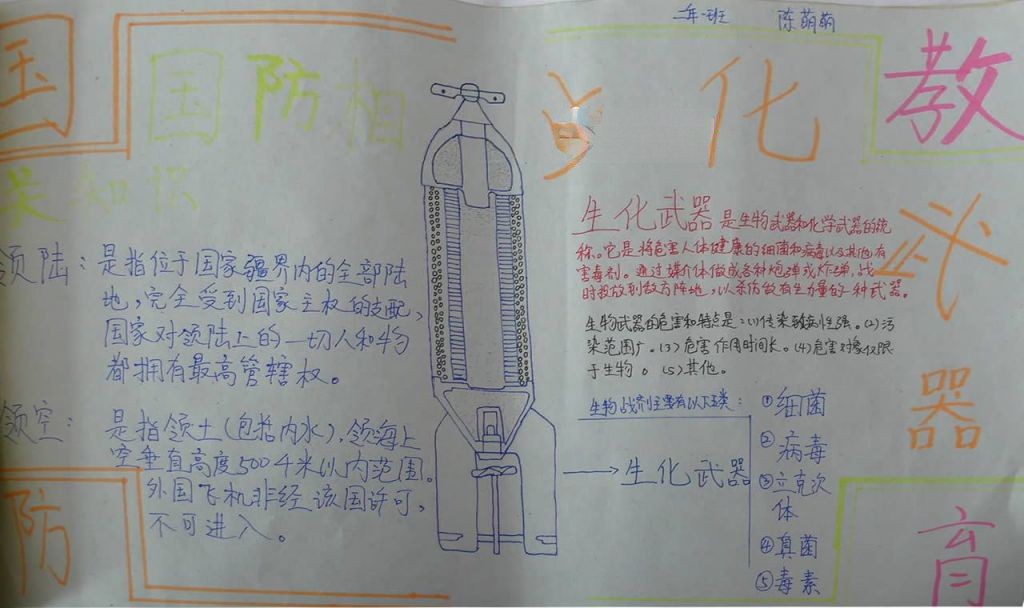 国
防
教
育
国防相
关知识
领陆：是指位于国家疆界内的全部陆
地，完全受到国家主权的支配，
国家对领陆上的一切人和物
都拥有最高管辖权。
领空：是指领土(包括内水)，领海上
空垂直高度500千米以内范围。
外国飞机非经该国许可，
不可进入。
二年一班 陈萌萌
化
武
器
生化武器是生物武器和化学武器的统
称。它是将危害人体健康的细菌和病毒以及其他有
害毒剂。通过媒介体做成各种炮弹或炸弹，战
时投放到敌方阵地，以杀伤敌有生力量的一种武器。
生物武器的危害和特点是：(1)传染致病性强。(2)污
染范围广。(3)危害作用时间长。(4)危害对象仅限
于生物。(5)其他。
生物战剂主要有以下五类：
生化武器
①细菌
②病毒
③立克次
体
④真菌
⑤毒素